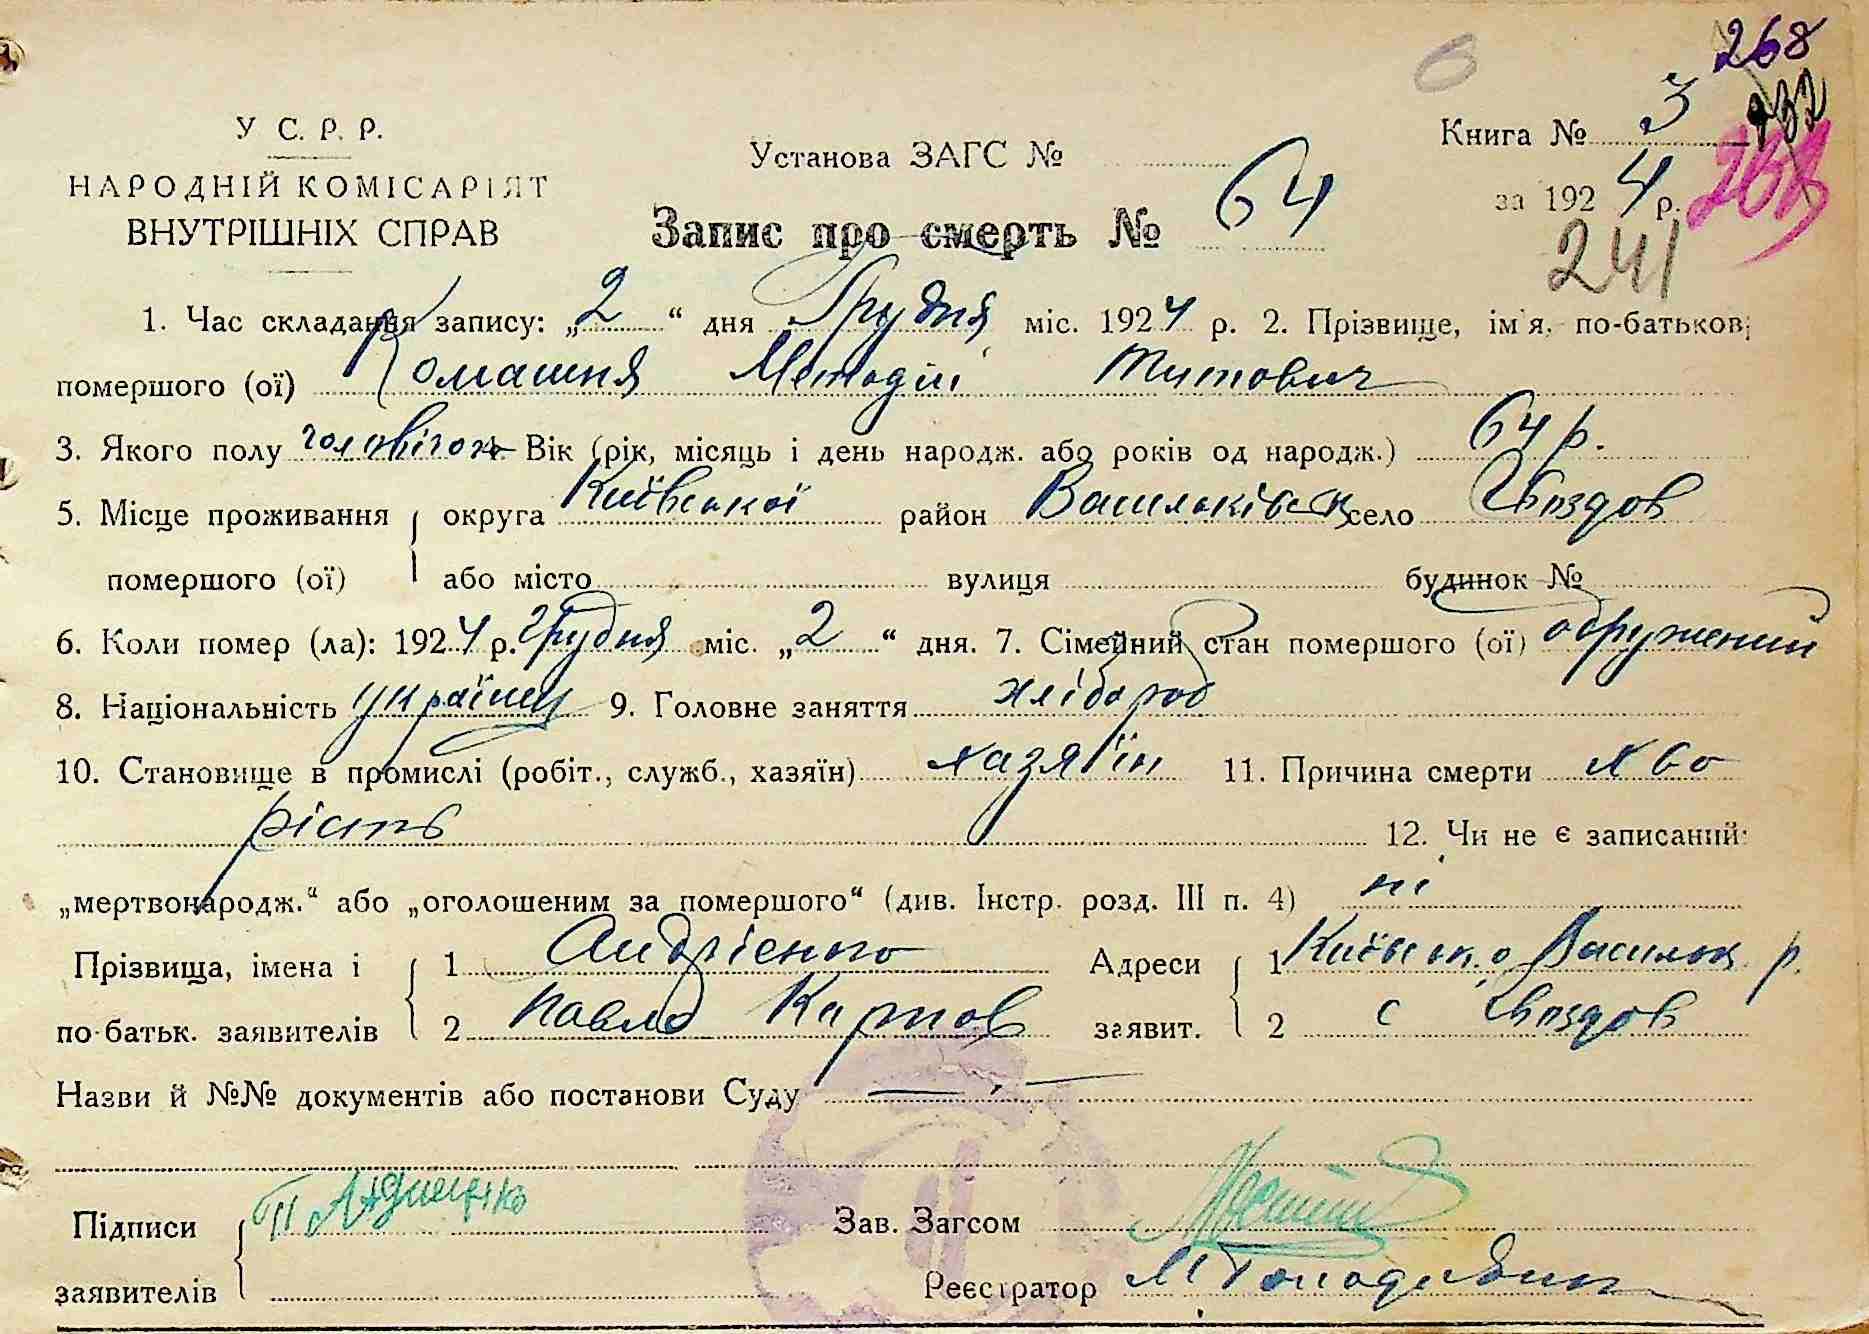 268
Книга № 3 132
У С. Р. Р.
Установа ЗАГС №
за 1924 р.
НАРОДНІЙ КОМІСАРІЯТ
ВНУТРІШНІХ СПРАВ
Запис про смерть № 64
241
1. Час складання запису: „2“ дня Грудня міс. 1924 р. 2. Прізвище, ім'я, по-батькові
помершого (ої) Ромашня Методій Титович
3. Якого полу чоловічого Вік (рік, місяць і день народж. або років од народж.) 64 р.
5. Місце проживання округа Київської район Васильківськ село Гвоздов
помершого (ої) або місто вулиця будинок №
6. Коли помер (ла): 1924 р. Грудня міс. „2“ дня. 7. Сімейний стан помершого (ої) одружений
8. Національність українец 9. Головне заняття хлібороб
10. Становище в промислі (робіт., служб., хазяїн) хазяїн 11. Причина смерти хво
рість 12. Чи не є записаний:
„мертвонародж.“ або „оголошеним за помершого“ (див. Інстр. розд. III п. 4) ні
Прізвища, імена і 1 Андрієнко Адреси 1 Київськ. о Васильк. р.
по-батьк. заявителів 2 Павло Карпов заявит. 2 с Гвоздов
Назви й №№ документів або постанови Суду —
Підписи П Адриенко Зав. Загсом
заявителів Реєстратор